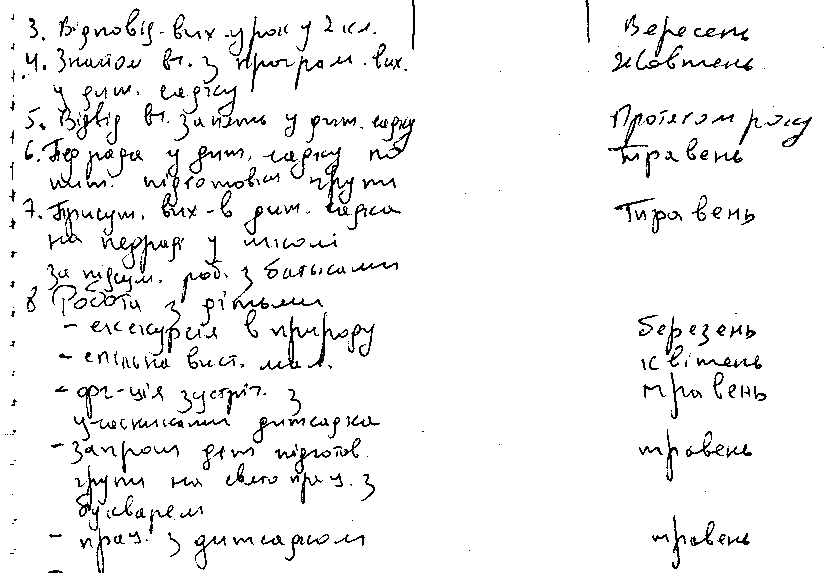 3. Відповід. вих. урок у 2 кл. Вересень
4. Знайом вч. з програм. вих. Жовтень
у дит. садку
5. Відвід вч. занять у дит. садку Протягом року
6. Пед рада у дит. садку по травень
пит. підготовки групи
7. Присут. вих-в дит. садка Травень
на педраді у школі
за підсум. роб. з батьками
8 Робота з дітьми
- екскурсія в природу березень
- спільна вист. мал. квітень
- орг-ція зустріч. з травень
учасниками дитсадка
- запрош дет підготов. травень
групи на свято прощ. з
букварем
- прощ. з дитсадком травень